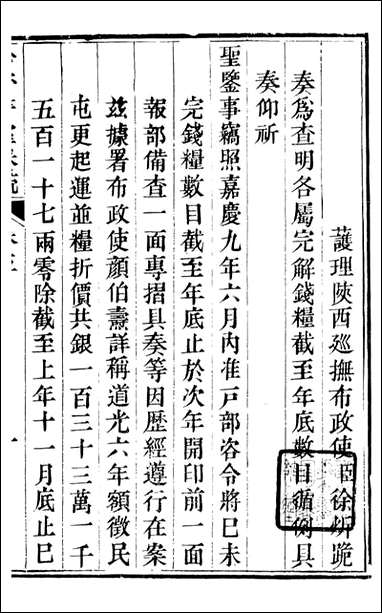 護理陝西廵撫布政使臣徐炘跪
奏爲查明各屬完解錢糧截至年底數目循例具
奏仰祈
聖鑒事竊照嘉慶九年六月內准戸部咨令將巳未
完錢糧數目截至年底止於次年開印前一面
報部備查一面專摺具奏等因歷經遵行在案
兹據署布政使顏伯燾詳稱道光六年額徵民
屯更起運並糧折價共銀一百三十三萬一千
五百一十七兩零除截至上年十一月底止巳